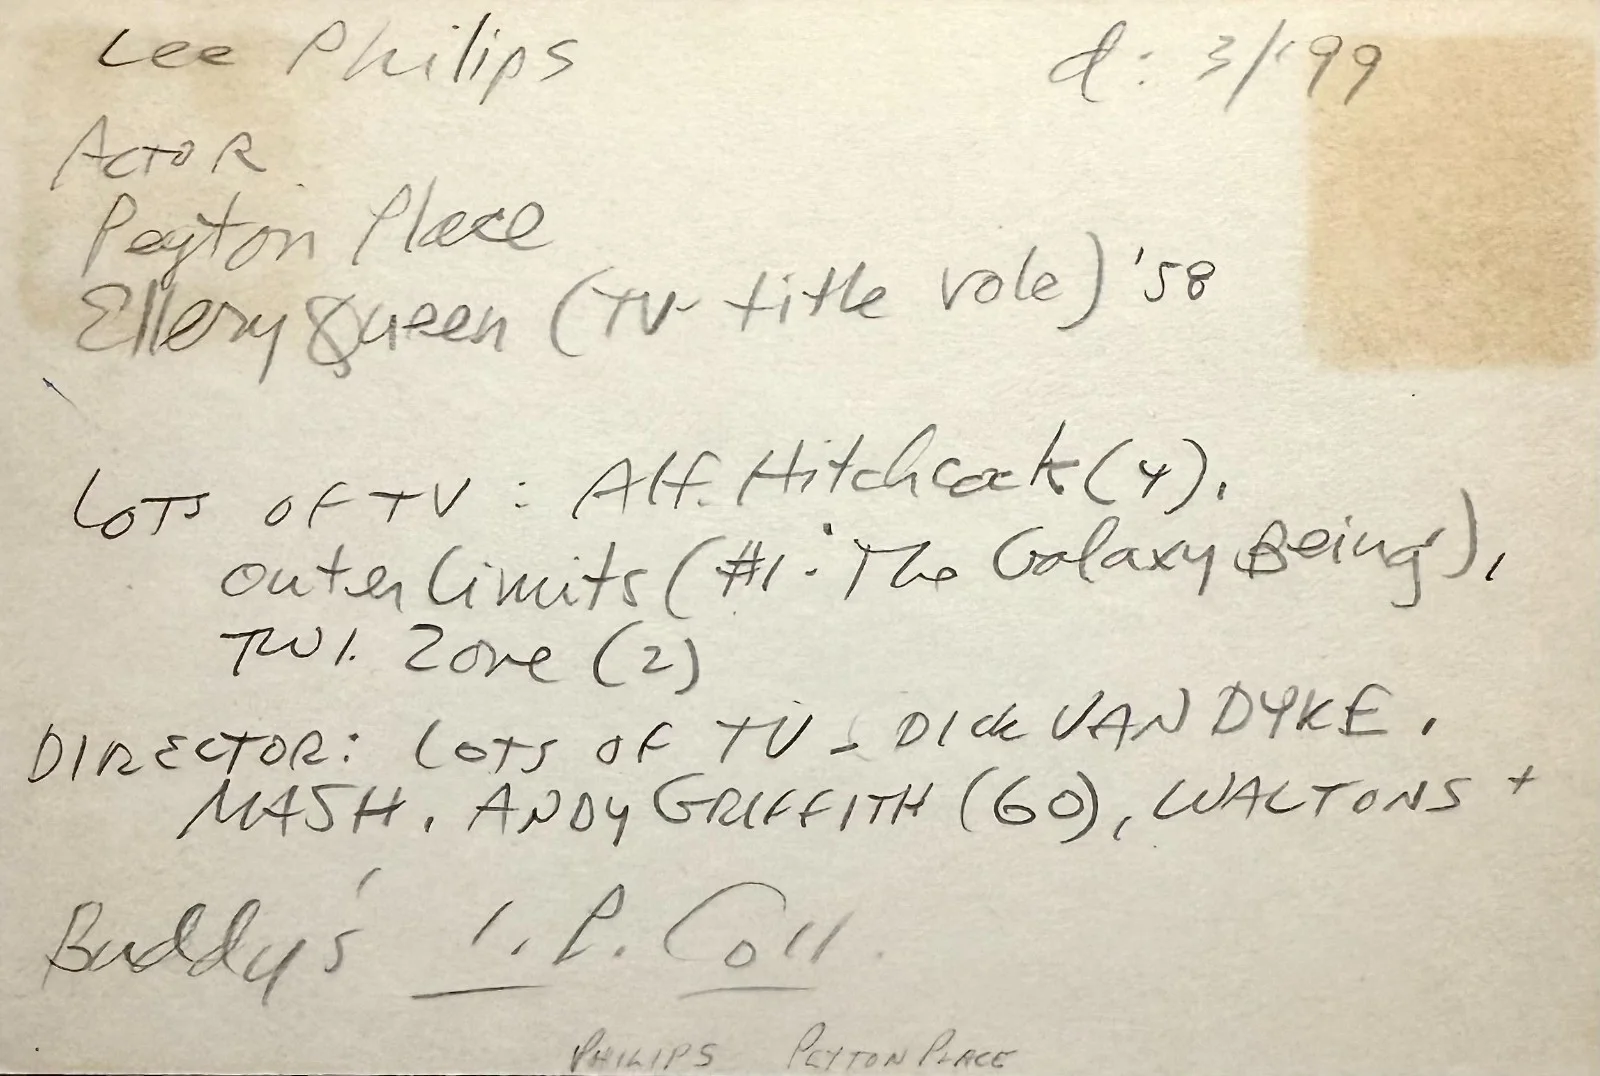 Lee Philips d: 3/'99
Actor
Peyton Place
Ellery Queen (TV- title role) '58
Lots of TV: Alf. Hitchcock (4),
Outer Limits (#1: "The Galaxy Being"),
TWI. Zone (2)
DIRECTOR: LOTS OF TV - DICK VAN DYKE,
MASH, ANDY GRIFFITH (60), WALTONS +
Buddy's P. Coll.
PHILIPS PEYTON PLACE